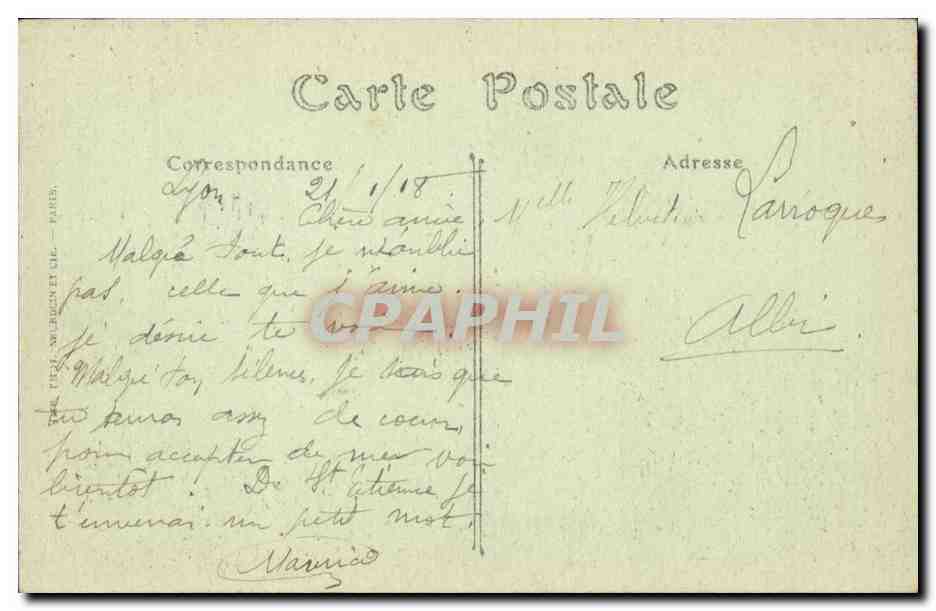 Carte Postale
Correspondance
Adresse
Lyon 21/1/18.
Chère amie,
Malgré tout, je n'oublie
pas, celle que j'aime.
je désire te voir.
Malgré ton silence, je sais que
tu auras assez de coeur,
pour accepter de me voir
bientôt. De St Etienne je
t'enverrai un petit mot.
Maurice
Melle Larroques
Albi
CPAPHIL
IMP. PHOT. NEURDEIN ET CIE. — PARIS.